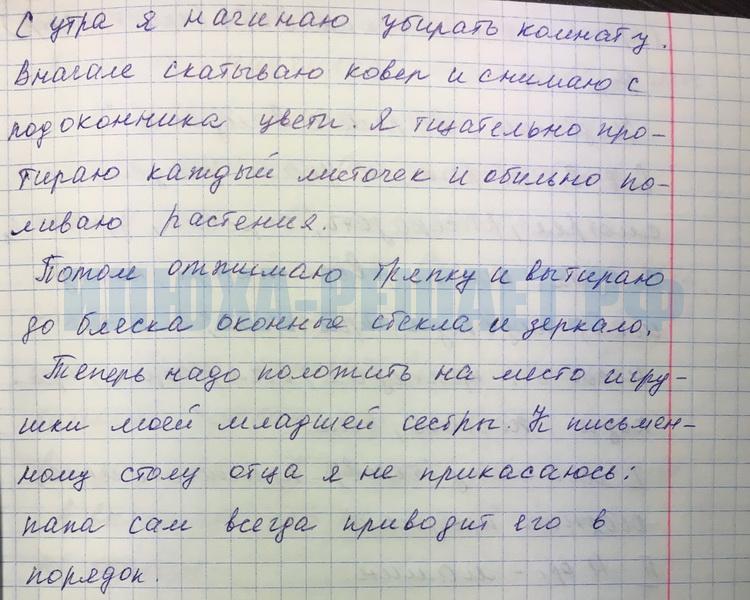 С утра я начинаю убирать комнату.
Вначале скатываю ковер и снимаю с
подоконника цветы. Я тщательно про-
тираю каждый листочек и обильно по-
ливаю растения.
Потом отжимаю тряпку и вытираю
ИПЛЮХА-РЕШАЕТ.РФ
до блеска оконные стёкла и зеркало.
Теперь надо положить на место игру-
шки моей младшей сестры. К письмен-
ному столу отца я не прикасаюсь:
папа сам всегда приводит его в
порядок.